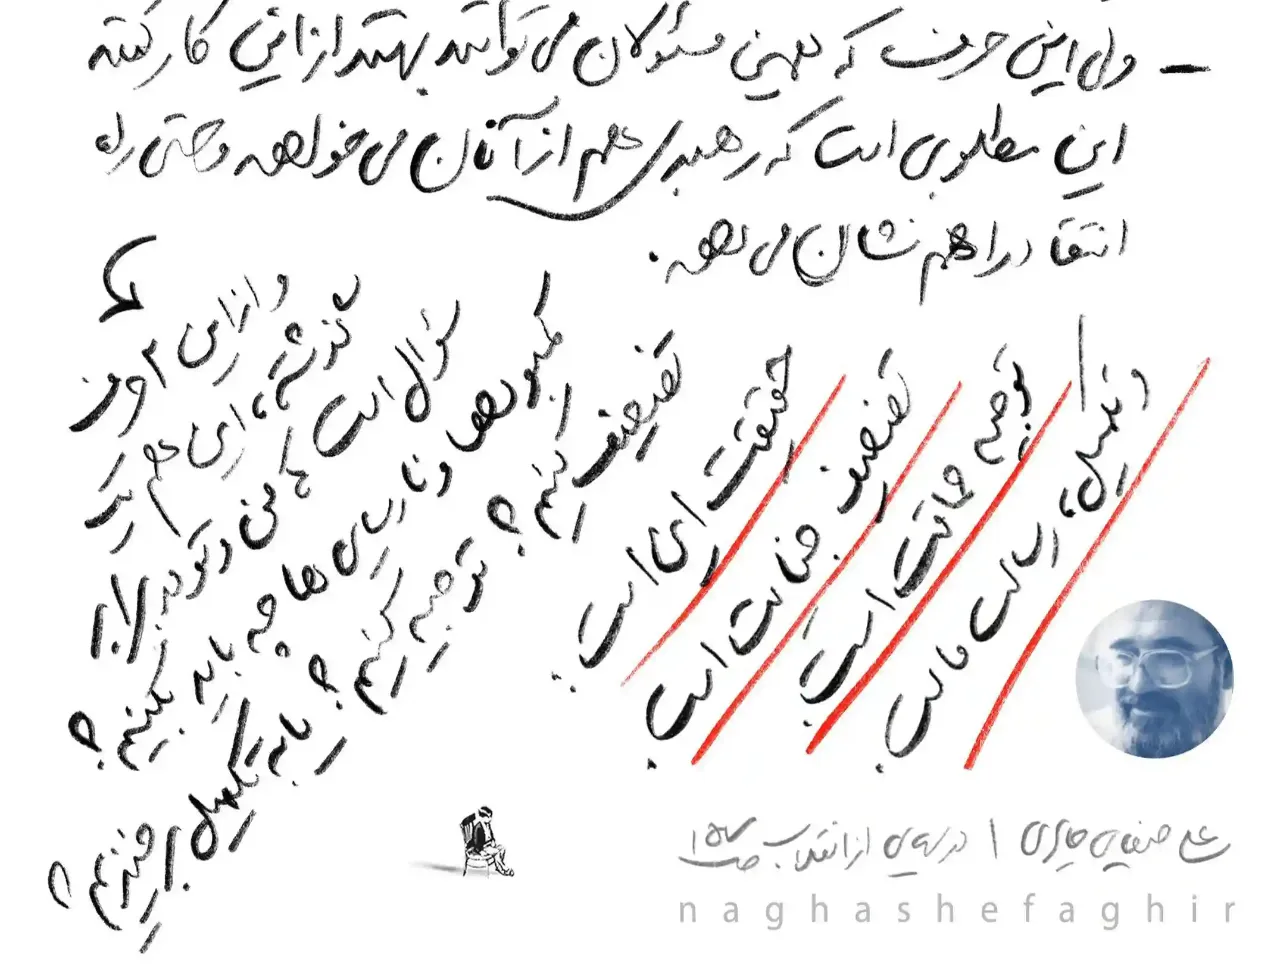 – ولی این حرف که همین مسئولان می‌توانند بهتر از این کار کنند
این مطلوبی است که رهبری هم از آنان می‌خواهد و حتی راه
انتقاد را هم نشان می‌دهد.
و از این ۲ حرف
گذشته، این هم یک
سؤال است که من و تو در برابر
کمبودها و نارسایی‌ها چه باید بکنیم؟
تضعیف کنیم؟ توجیه کنیم؟ یا به تکمیل برخیزیم؟
حقیقت این است:
تضعیف جنایت است.
توجیه حماقت است.
و تکمیل، رسالت ماست.
علی صفایی حائری | درس‌هایی از انقلاب ص
naghashefaghir